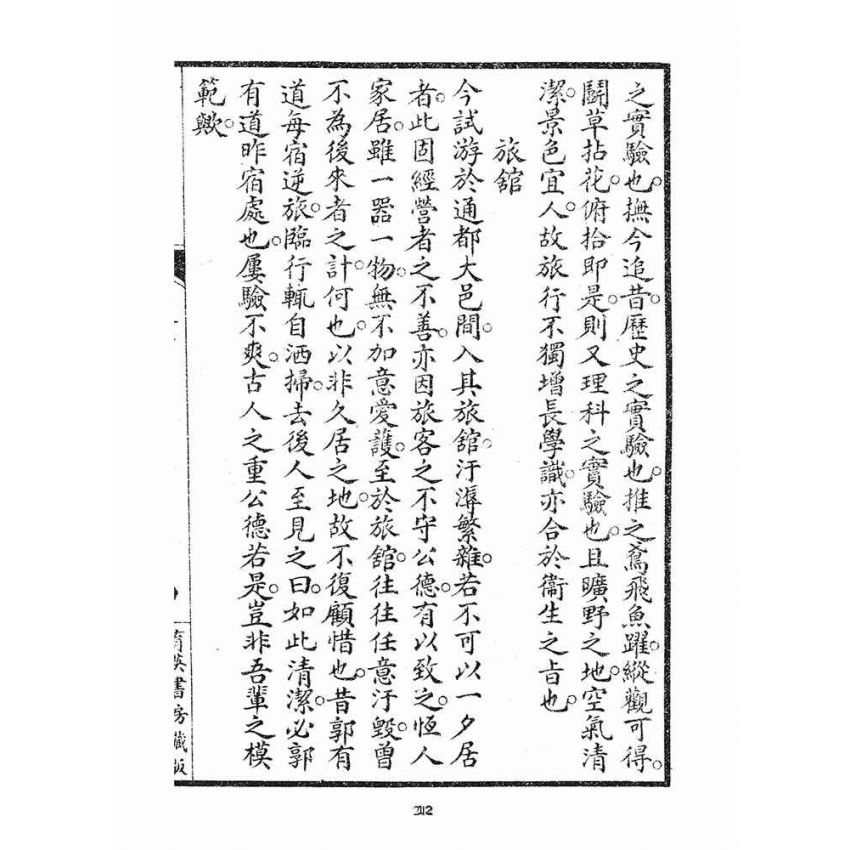 之實驗也。撫今追昔。歷史之實驗也。推之鳶飛魚躍。縱觀可得。
鬭草拈花。俯拾即是。則又理科之實驗也。且曠野之地。空氣清
潔。景色宜人。故旅行不獨增長學識。亦合於衞生之旨也。
旅舘
今試游於通都大邑間。入其旅舘。汙溽繁雜。若不可以一夕居
者。此固經營者之不善。亦因旅客之不守公德。有以致之。恆人
家居。雖一器一物。無不加意愛護。至於旅舘。往往任意汙毀。曾
不為後來者之計。何也。以非久居之地。故不復顧惜也。昔郭有
道每宿逆旅。臨行輒自洒掃。去後人至見之曰。如此清潔。必郭
有道昨宿處也。屢驗不爽。古人之重公德若是。豈非吾輩之模
範歟。
育英書房藏版
212